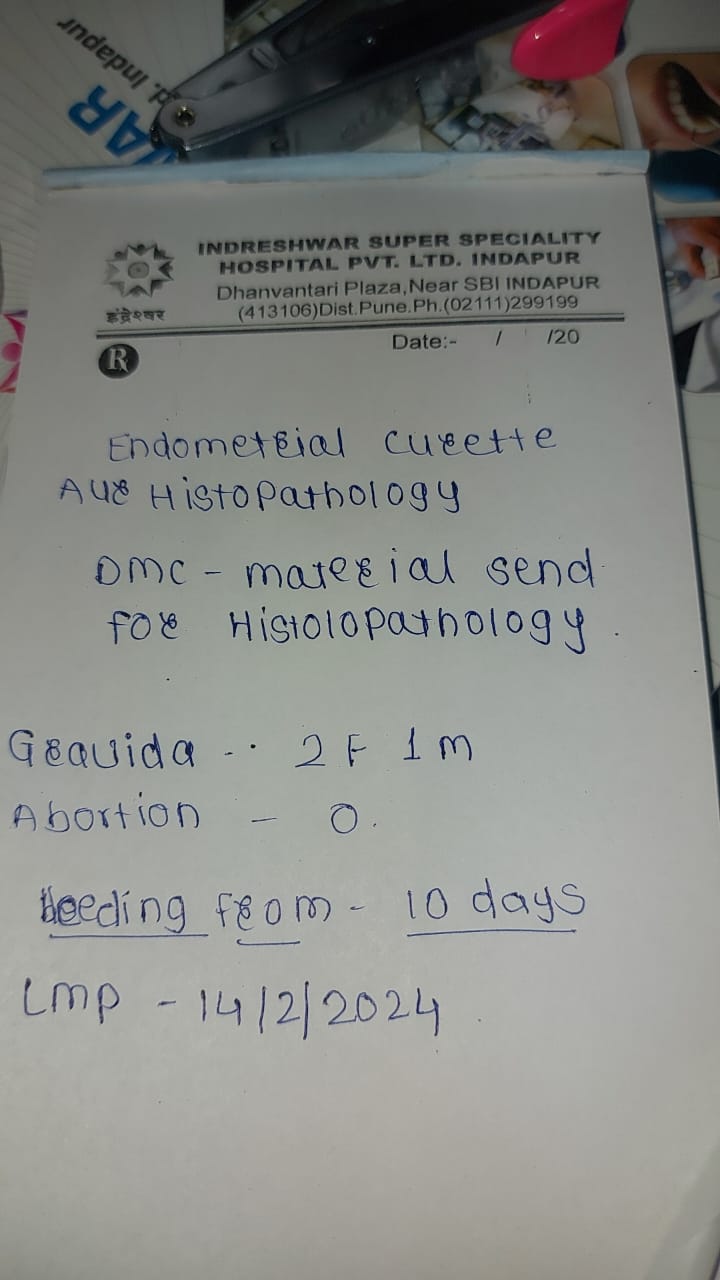 Indapur
d. Indapur
AR
INDRESHWAR SUPER SPECIALITY
HOSPITAL PVT. LTD. INDAPUR
Dhanvantari Plaza,Near SBI INDAPUR
(413106)Dist.Pune.Ph.(02111)299199
इंद्रेश्वर
Date:- / /20
R
Endometrial curette
Histopathology
DMC - material send
for Histolopathology.
Gravida -- 2 F 1 m
Abortion - 0.
Beeding from - 10 days
LMP - 14/2/2024.